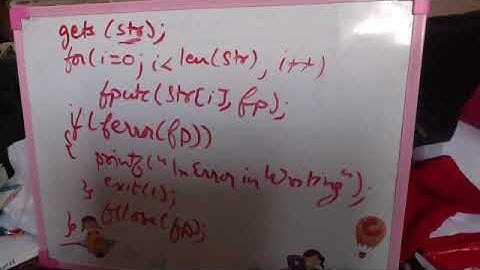 gets (str);
for(i=0; i<len(str), i++)
fputc (str[i], fp);
if (ferror(fp))
{
printf("\n Error in Writing");
exit(1);
}
fclose(fp);
}